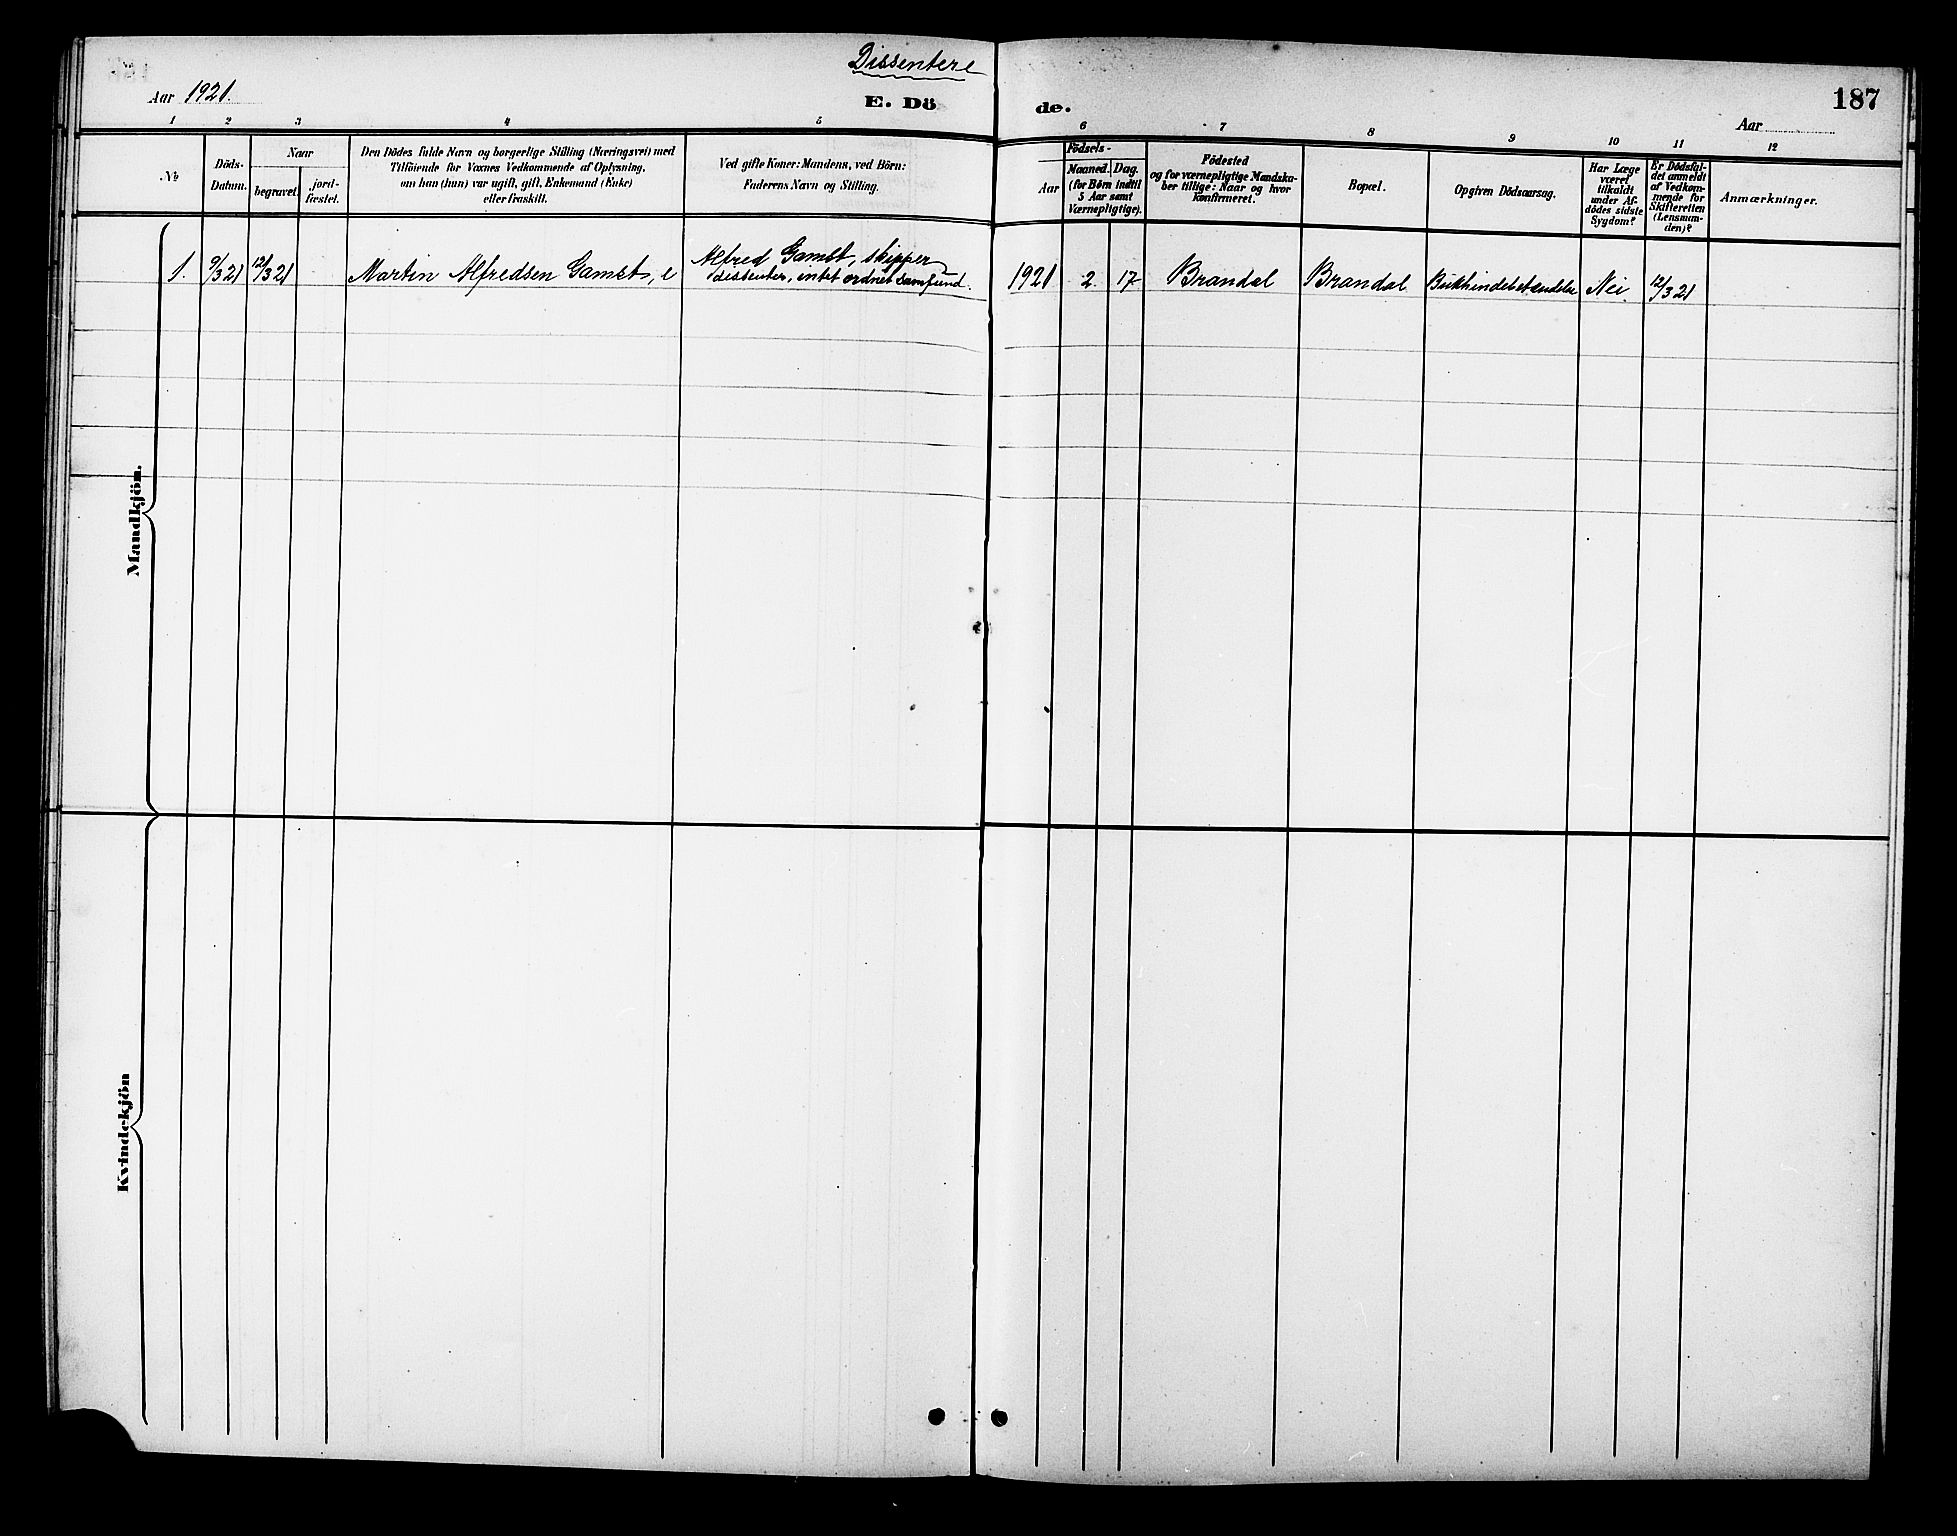 Dissentere
Aar 1921.
E. Dö
de.
187
Aar
1 2 3 4 5 6 7 8 9 10 11 12
No
Döds-
Datum.
Naar
begravet.
jord-
fæstet.
Den Dödes fulde Navn og borgerlige Stilling (Næringsvei) med
Tilföiende for Voxnes Vedkommende af Oplysning,
om han (hun) var ugift, gift, Enkemand (Enke)
eller fraskilt.
Ved gifte Koner: Mandens, ved Börn:
Faderens Navn og Stilling.
Födsels-
Aar
Maaned.
Dag.
(for Börn indtil
5 Aar samt
Værnepligtige).
Födested
og for værnepligtige Mandska-
ber tillige: Naar og hvor
konfirmeret.
Bopæl.
Opgiven Dödsaarsag.
Har Læge
været
tilkaldt
under Af-
dödes sidste
Sygdom?
Er Dödsfal-
det anmeldt
af Vedkom-
mende for
Skifteretten
(Lensman-
den)?
Anmærkninger.
1. 9/3 21 12/3 21 Martin Alfredsen Gamst, e
Alfred Gamst, skipper
dissenter, intet ordnet samfund.
1921 2. 17 Brandal Brandal Bukhindebetændelse Nei 12/3 21
Mandkjön.
Kvindekjön